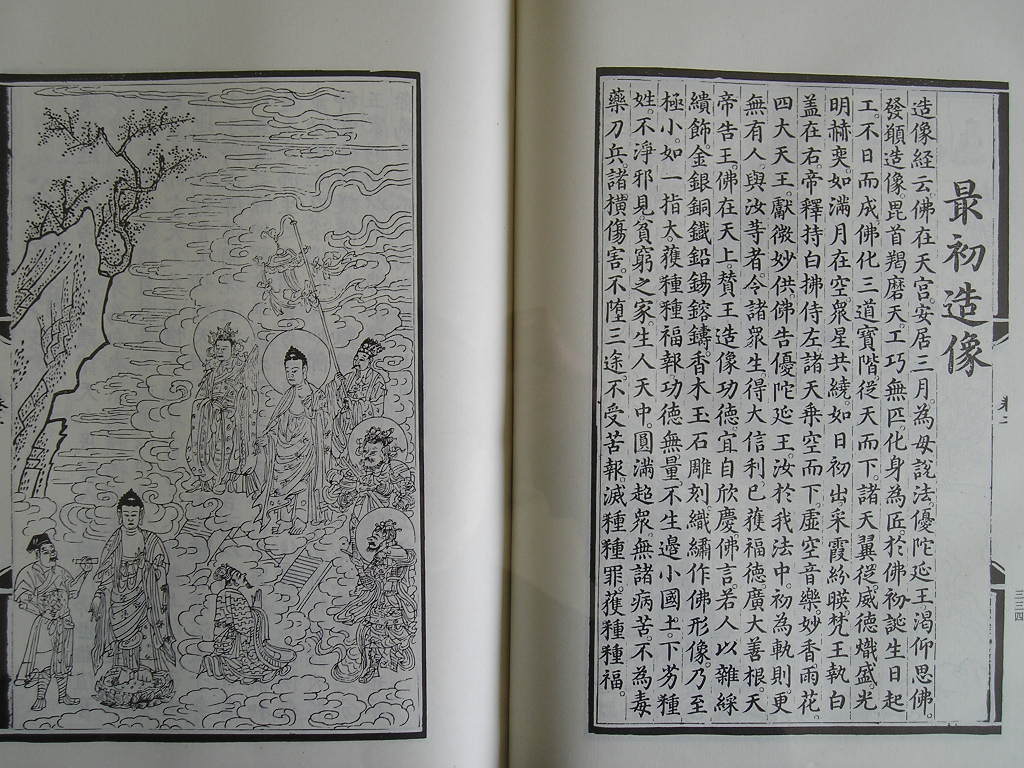 最初造像
造像經云佛在天宮。安居三月。為母說法優陀延王渴仰思佛。
發願造像毘首羯磨天。工巧無匹。化身為匠。於佛初誕生日起
工。不日而成。佛化三道寶階。從天而下。諸天翼從。威德熾盛光
明赫奕。如滿月在空。眾星共繞。如日初出采霞紛暎。梵王執白
蓋在右。帝釋持白拂侍左。諸天乘空而下。虛空音樂。妙香雨花。
四大天王。獻微妙供。佛告優陀延王。汝於我法中。初為軌則。更
無有人與汝等者。令諸眾生。得大信利。已獲福德廣大善根。天
帝告王。佛在天上。贊王造像功德。宜自欣慶。佛言。若人以雜綵
繢飾。金銀銅鐵鉛錫鎔鑄。香木玉石雕刻。織繡作佛形像。乃至
極小。如一指大。獲種種福報。功德無量。不生邊小國土。下劣種
姓。不淨邪見。貧窮之家。生人天中。圓滿超眾。無諸病苦。不為毒
藥刀兵諸橫傷害。不墮三途。不受苦報。滅種種罪。獲種種福。
三三四